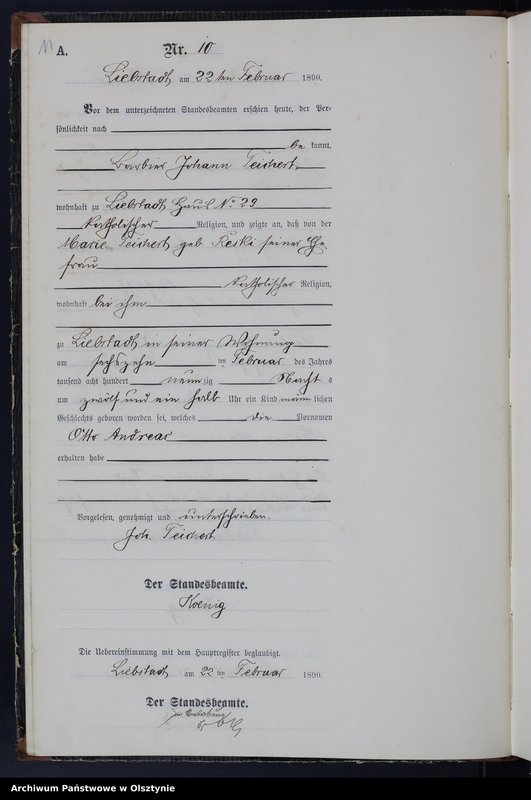 11
A.
Nr. 10
Liebstadt am 22 ten Februar 1890.
Vor dem unterzeichneten Standesbeamten erschien heute, der Per-
sönlichkeit nach
be kannt,
Barbier Johann Teichert
wohnhaft zu Liebstadt Haus No 29
katholischer Religion, und zeigte an, daß von der
Marie Teichert geb Reski seiner Ehe
frau
katholischer Religion,
wohnhaft bei ihm
zu Liebstadt in seiner Wohnung
am sechszehn ten Februar des Jahres
tausend acht hundert neun zig Nacht s
um zwölf und ein halb Uhr ein Kind männ lichen
Geschlechts geboren worden sei, welches die Vornamen
Otto Andreas
erhalten habe
Vorgelesen, genehmigt und unterschrieben.
Joh. Teichert
Der Standesbeamte.
Koenig
Die Uebereinstimmung mit dem Hauptregister beglaubigt.
Liebstadt am 22 ten Februar 1890.
Der Standesbeamte.
Archiwum Państwowe w Olsztynie